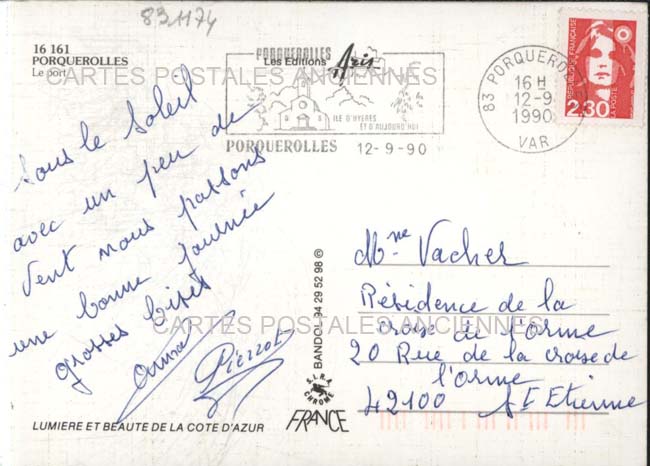 83.1174
16 161
PORQUEROLLES
Le port
Les Editions Aris
PORQUEROLLES
ILE D'HYERES
ET D'AUJOURD'HUI
PORQUEROLLES 12-9-90
83 PORQUEROLLES
16 H
12-9
1990
VAR
REPUBLIQUE FRANCAISE
LA POSTE
2,30
CARTES POSTALES ANCIENNES
Sous le Soleil
avec un peu de
Vent nous passons
une bonne journée
grosses bises
Anna
Pierrot
BANDOL 94 29 52 98 ©
S.I.R.A.
CHROME
FRANCE
Mme Vacher
Résidence de la
croise de l'Orme
CARTES POSTALES ANCIENNES
20 Rue de la croise de
l'orme
42100 St Etienne
LUMIERE ET BEAUTE DE LA COTE D'AZUR